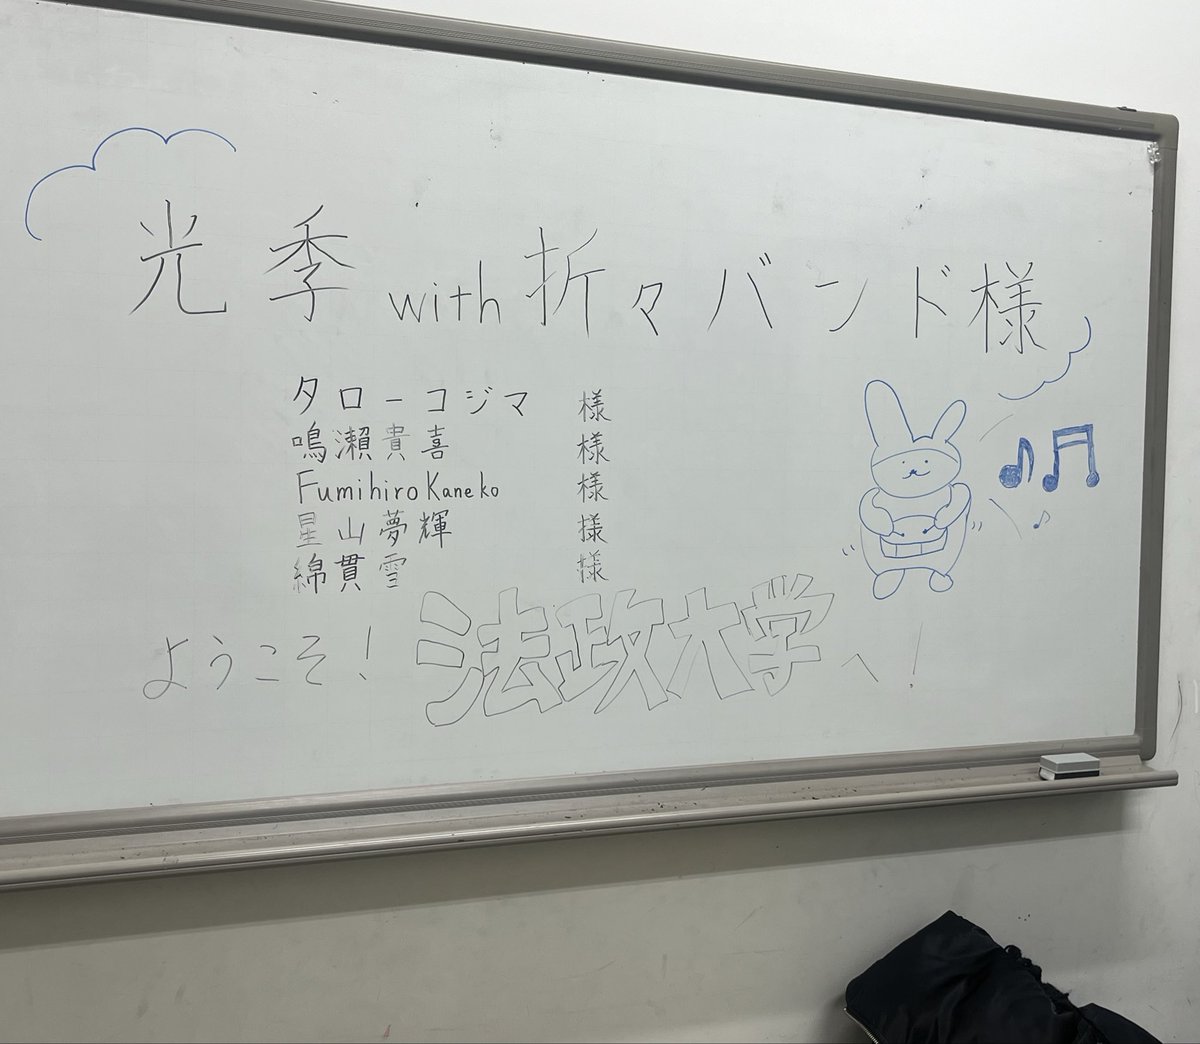 光季 with 折々バンド様
タローコジマ 様
鳴瀬貴喜 様
Fumihiro Kaneko 様
星山夢輝 様
綿貫雪 様
ようこそ！法政大学へ！